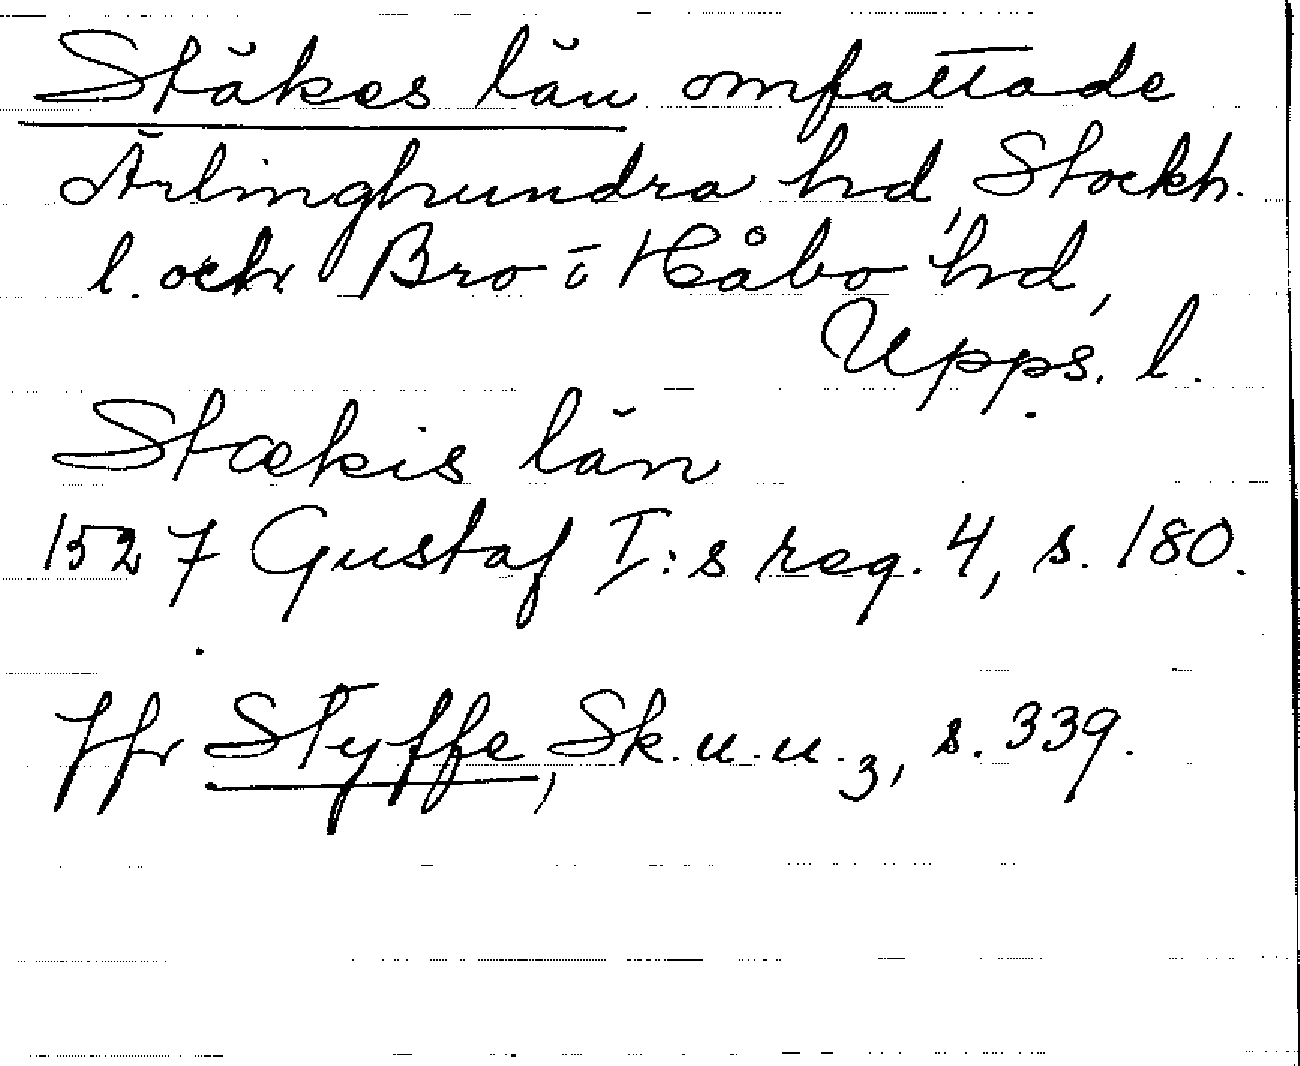 Stäkes län omfattade
Ärlinghundra hd, Stockh.
l. och Bro i Håbo hd,
Upps. l.
Stækis län
1527 Gustaf I:s reg. 4, s. 180.
Jfr Styffe, Sk.u.u.3, s. 339.